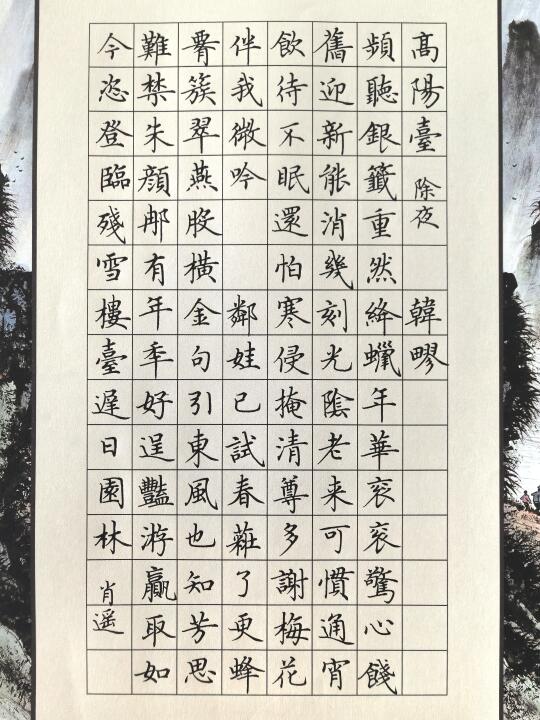 高陽臺 除夜 韓疁
頻聽銀籤重然絳蠟年華袞袞驚心餞
舊迎新能消幾刻光陰老来可慣通宵
飲待不眠還怕寒侵掩清尊多謝梅花
伴我微吟 鄰娃已試春了更蜂
簇翠燕股橫金句引東風也知芳思
難禁朱顏那有年秊好逞豔游贏取如
今恣登臨殘雪樓臺遲日園林 肖遥